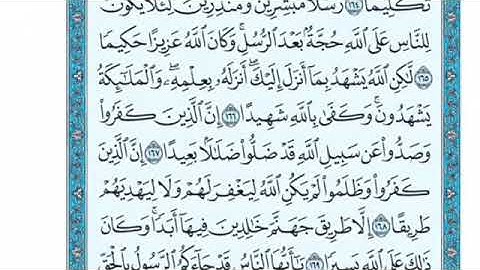 تَكْلِيمًا ﴿١٦٤﴾ رُّسُلًا مُّبَشِّرِينَ وَمُنذِرِينَ لِئَلَّا يَكُونَ
لِلنَّاسِ عَلَى ٱللَّهِ حُجَّةٌۢ بَعْدَ ٱلرُّسُلِۚ وَكَانَ ٱللَّهُ عَزِيزًا حَكِيمًا
﴿١٦٥﴾ لَّٰكِنِ ٱللَّهُ يَشْهَدُ بِمَآ أَنزَلَ إِلَيْكَۖ أَنزَلَهُۥ بِعِلْمِهِۦۖ وَٱلْمَلَٰٓئِكَةُ
يَشْهَدُونَۚ وَكَفَىٰ بِٱللَّهِ شَهِيدًا ﴿١٦٦﴾ إِنَّ ٱلَّذِينَ كَفَرُوا۟
وَصَدُّوا۟ عَن سَبِيلِ ٱللَّهِ قَدْ ضَلُّوا۟ ضَلَٰلًۢا بَعِيدًا ﴿١٦٧﴾ إِنَّ ٱلَّذِينَ
كَفَرُوا۟ وَظَلَمُوا۟ لَمْ يَكُنِ ٱللَّهُ لِيَغْفِرَ لَهُمْ وَلَا لِيَهْدِيَهُمْ
طَرِيقًا ﴿١٦٨﴾ إِلَّا طَرِيقَ جَهَنَّمَ خَٰلِدِينَ فِيهَآ أَبَدًاۚ وَكَانَ
ذَٰلِكَ عَلَى ٱللَّهِ يَسِيرًا ﴿١٦٩﴾ يَٰٓأَيُّهَا ٱلنَّاسُ قَدْ جَآءَكُمُ ٱلرَّسُولُ بِٱلْحَقِّ